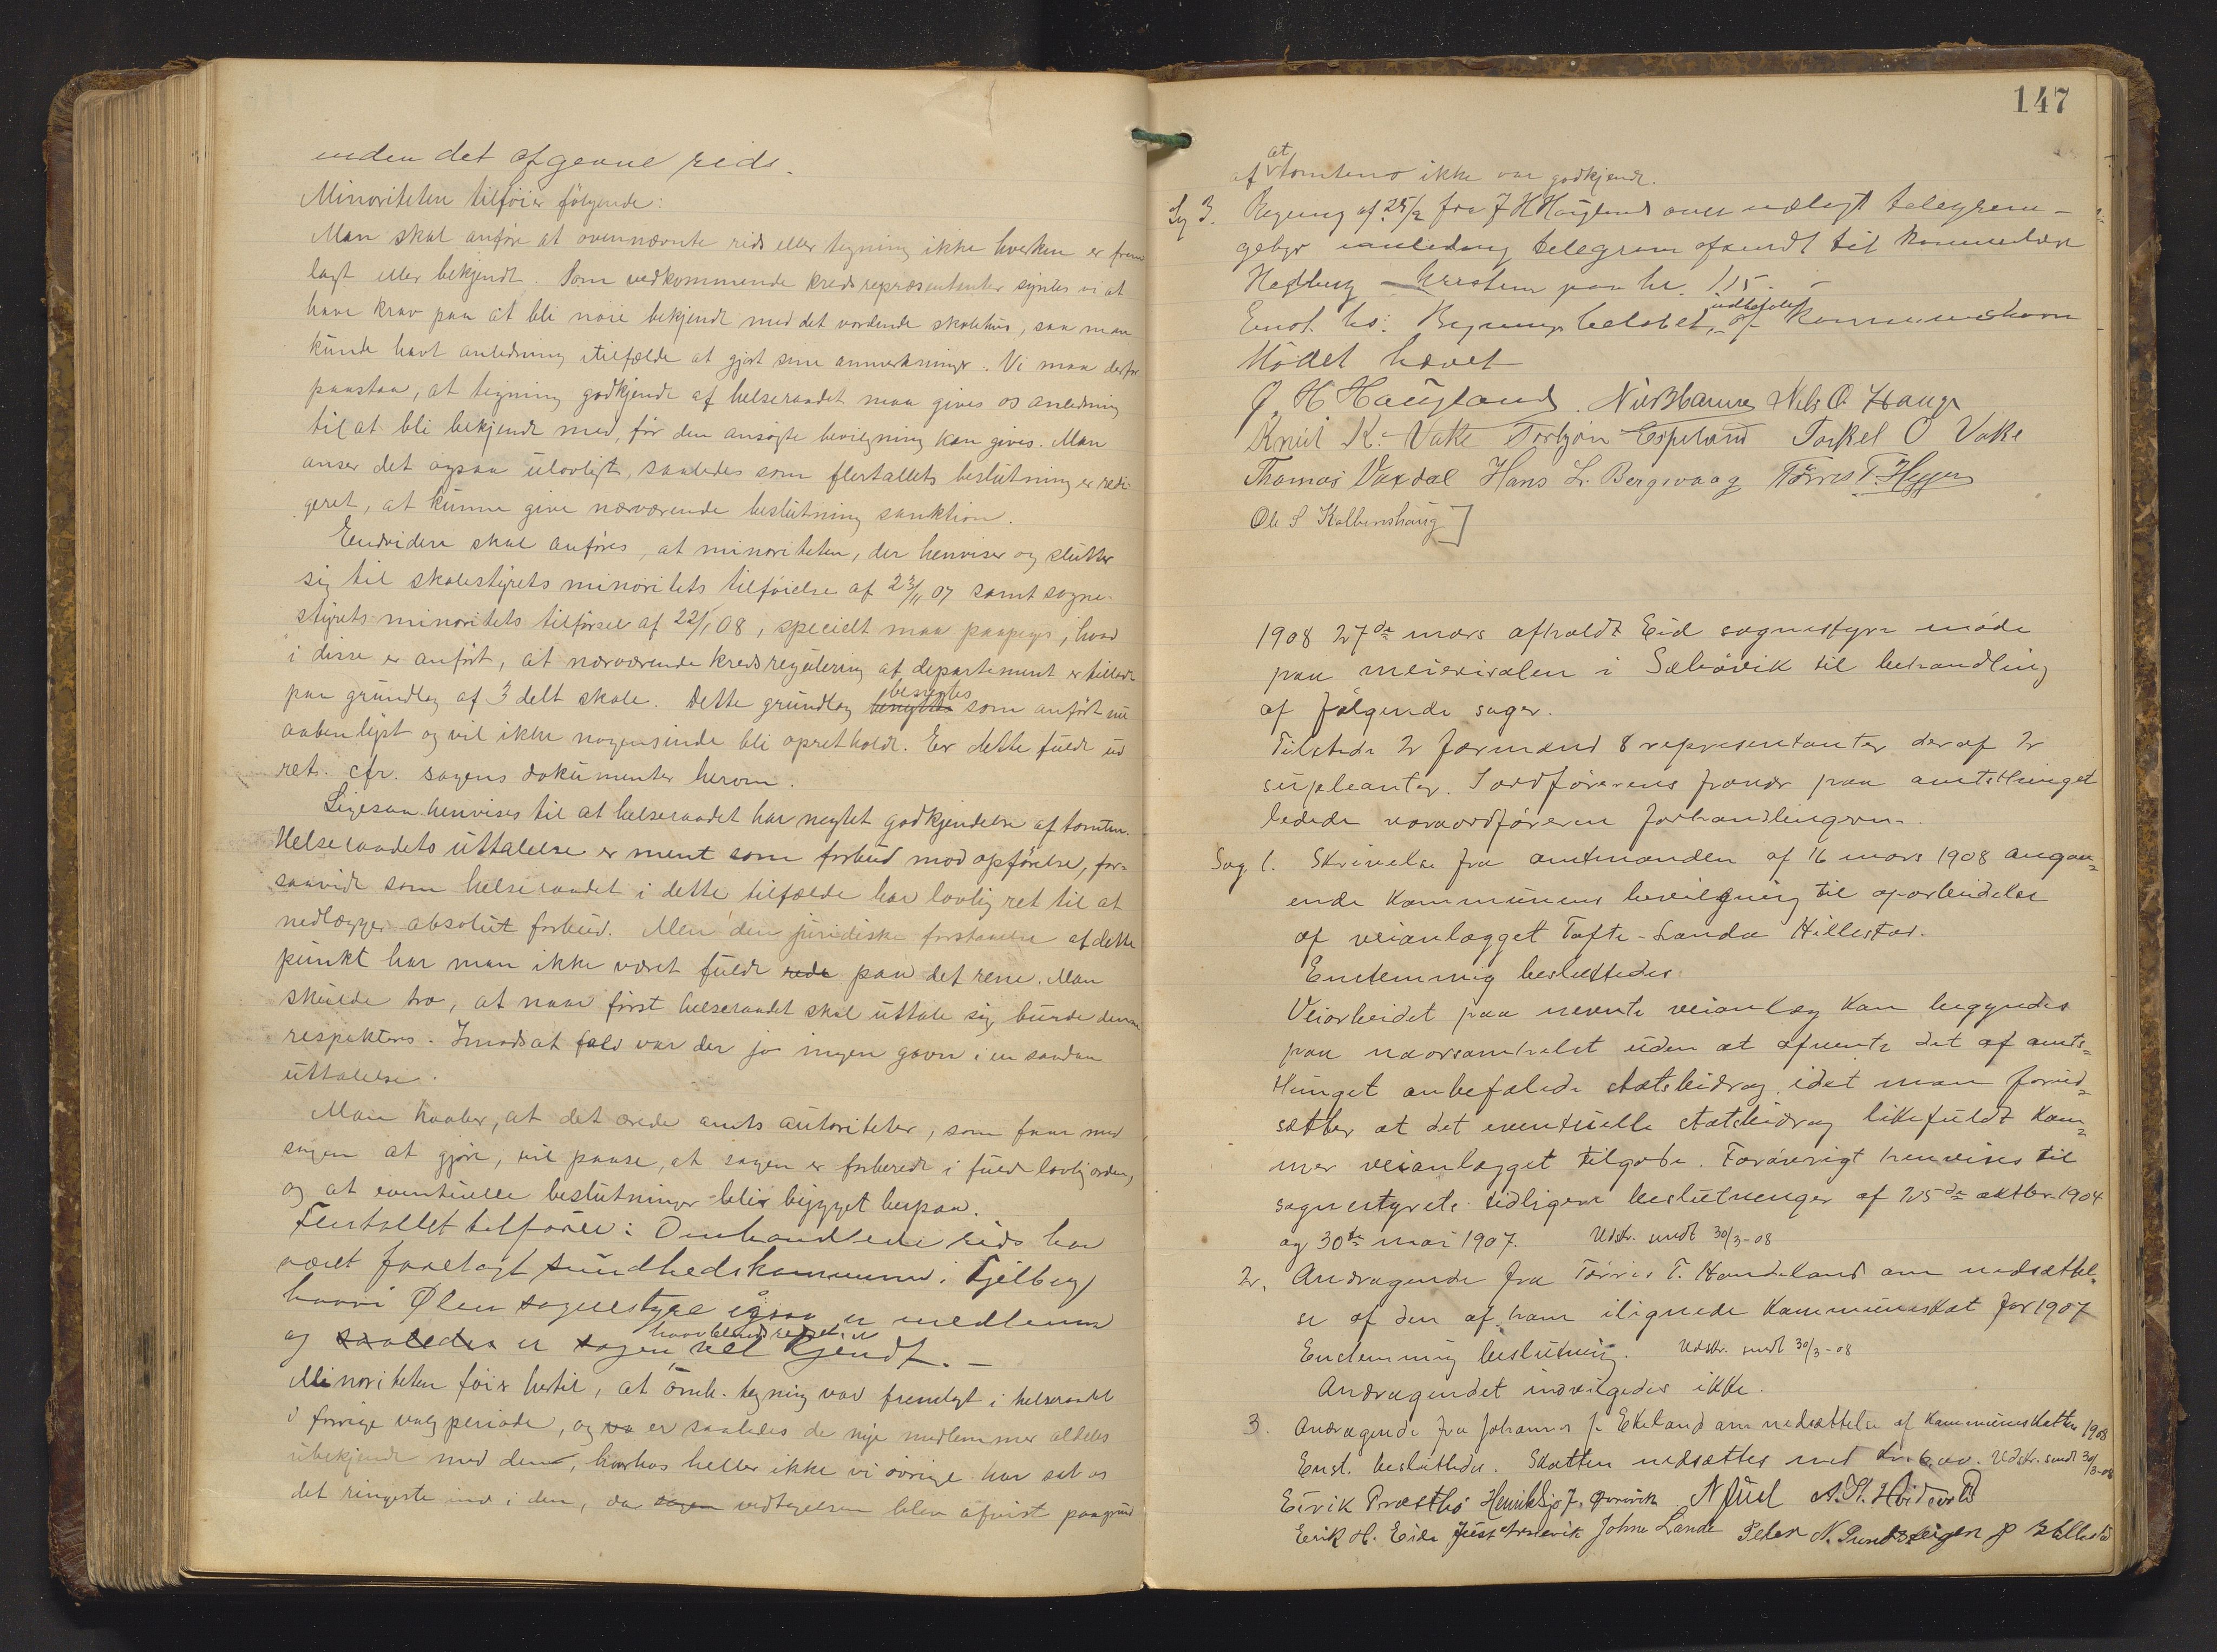 inden det afgevne rids.
Minoriteten tilføier følgende:
Man skal anføre at ovennævnte rids eller tegning ikke hverken er frem
lagt eller bekjendt. Som vedkommende kredsrepræsentanter syntes vi at
have krav paa at bli nøie bekjendt med det vordende skolehus, saa man
kunde havt anledning itilfælde at gjort sine anmerkninger. Vi maa derfor
paastaa, at tegning godkjendt af helseraadet maa gives os anledning
til at bli bekjendt med, før den ansøgte bevilgning kan gives. Man
anser det ogsaa ulovligt, saaledes som flertallets beslutning er redi-
geret, at kunne give nærværende beslutning sanktion.
Endvidere skal anføres, at minoriteten, der henviser og slutter
sig til skolestyrets minoritets tilføielse af 23/11 07 samt sogne-
styrets minoritets tilførsel af 22/1 08, specielt maa paapege, hvad
i disse er anført, at nærværende kredsregulering af departement er tilladt
paa grundlag af 3 delt skole. Dette grundlag benegtes som anført nu
aabenlyst og vil ikke nogensinde bli opretholdt. Er dette fuldt ud
ret. cfr. sagens dokumenter herom.
Ligesaa henvises til at helseraadet har negtet godkjendelse af tomten.
Helseraadets uttalelse er ment som forbud mod opførelse, for-
saavidt som helseraadet i dette tilfælde har lovlig ret til at
nedlægge absolut forbud. Men den juridiske forstaaelse af dette
punkt har man ikke været fuldt rede paa det rene. Man
skulde tro, at naar først helseraadet skal uttale sig burde denne
respekteres. Imodsat fald var der jo ingen gavn i en saadan
uttalelse.
Man haaber, at det ærede amts autoriteter, som faar med
sagen at gjøre, vil paase, at sagen er forberedt i fuld lovlig orden,
og at eventuelle beslutninger blir bygget herpaa.
Flertallet tilføier: Omhandlede rids har
været forelagt sundhedskommissionen i Fjelberg
hvori Ølen sognestyre ogsaa er medlemm
og saaledes er sagen vel kjendt. -
Minoriteten føier hertil, at omh. tegning var fremlagt i helseraadet
i forrige valgperiode, og er saaledes de nye medlemmer aldeles
ubekjendt med den, hvorhos heller ikke vi øvrige har sat os
det ringeste ind i den, da sagen vedtagelsen blev afvist paagrund
147
af at tomtens ikke var godkjendt.
Sag 3. Regning af 25/2 fra J H Haugland over udlagt telegram-
gebyr anledning telegram afsendt til
Heglberg kr. 1,15. -
Enst. bs: Regningsbeløbet udbetales af Kommunekassen
Mødet hævet
J H Haugland Nils O. Hauge
Knut K. Vake Torbjøn Espeland Torkel O Vake
Thomas Vaxdal Hans L. Bergsvaag Tørres T. Heggen
Ole S Kalbenshaug
1908 27de mars afholdt Eid sognestyre møde
paa meierisalen i Sæbøvik til behandling
af følgende sager.
Tilstede 2 formænd 8 representanter deraf 2
supleanter. I ordførerens fravær paa amtsthinget
ledede varaordføreren forhandlingerne.
Sag 1. Skrivelse fra amtmanden af 16 mars 1908 angaa=
ende Kommunens bevilgning til oparbeidelse
af veianlægget Tofte-Landa Hillestad.
Enstemmig besluttedes
Veiarbeidet paa nevnte veianlæg kan begyndes
paa naorsomhelst uden at afvente det af amts=
thinget anbefalede statsbidrag idet man forud=
sætter at det eventuelle statsbidrag likefuldt kom=
mer veianlægget tilgode. Forøvrigt henvises til
sognestyrets tidligere beslutninger af 25de oktbr. 1904
og 30te mai 1907. Udstr. sendt 30/3-08
2. Andragende fra Tørris T. Handeland om nedsættel=
se af den af ham ilignede Kommuneskat for 1907
Enstemmig beslutning. Udstr. sendt 30/3-08
Andragendet indvilgedes ikke.
3. Andragende fra Johannes J. Ekeland om nedsættelse af Kommuneskatten 1908
Enst. besluttedes. Skatten nedsættes med kr. 6,00. Udstr. sendt 30/3-08
Eirik Præsthø Henrik N Juel A. H. Hvidevold
Erik H. Eide Just Arnevik Johne Lande Peder N. Sundsteigen P Hillestad